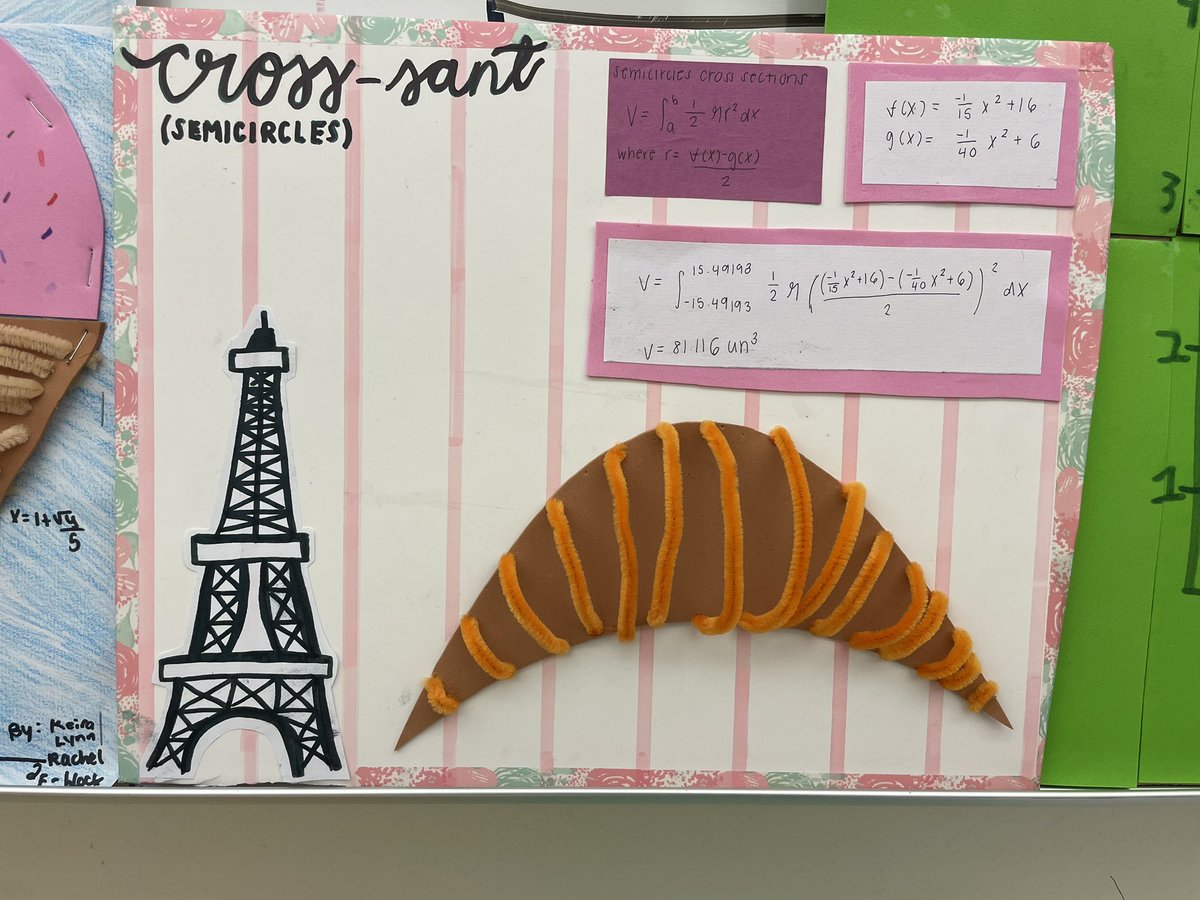 cross-sant
(SEMICIRCLES)
semicircles cross sections
V = ∫_a^b 1/2 πr² dx
where r = f(x)-g(x)/2
f(x) = -1/15 x² + 16
g(x) = -1/40 x² + 6
V = ∫_{-15.49193}^{15.49193} 1/2 π ((-1/15 x²+16)-(-1/40 x²+6)/2)² dx
V = 81.116 un³
x=1+√y/5
By: Keira
Lynn
Rachel
F-block
3
2
1